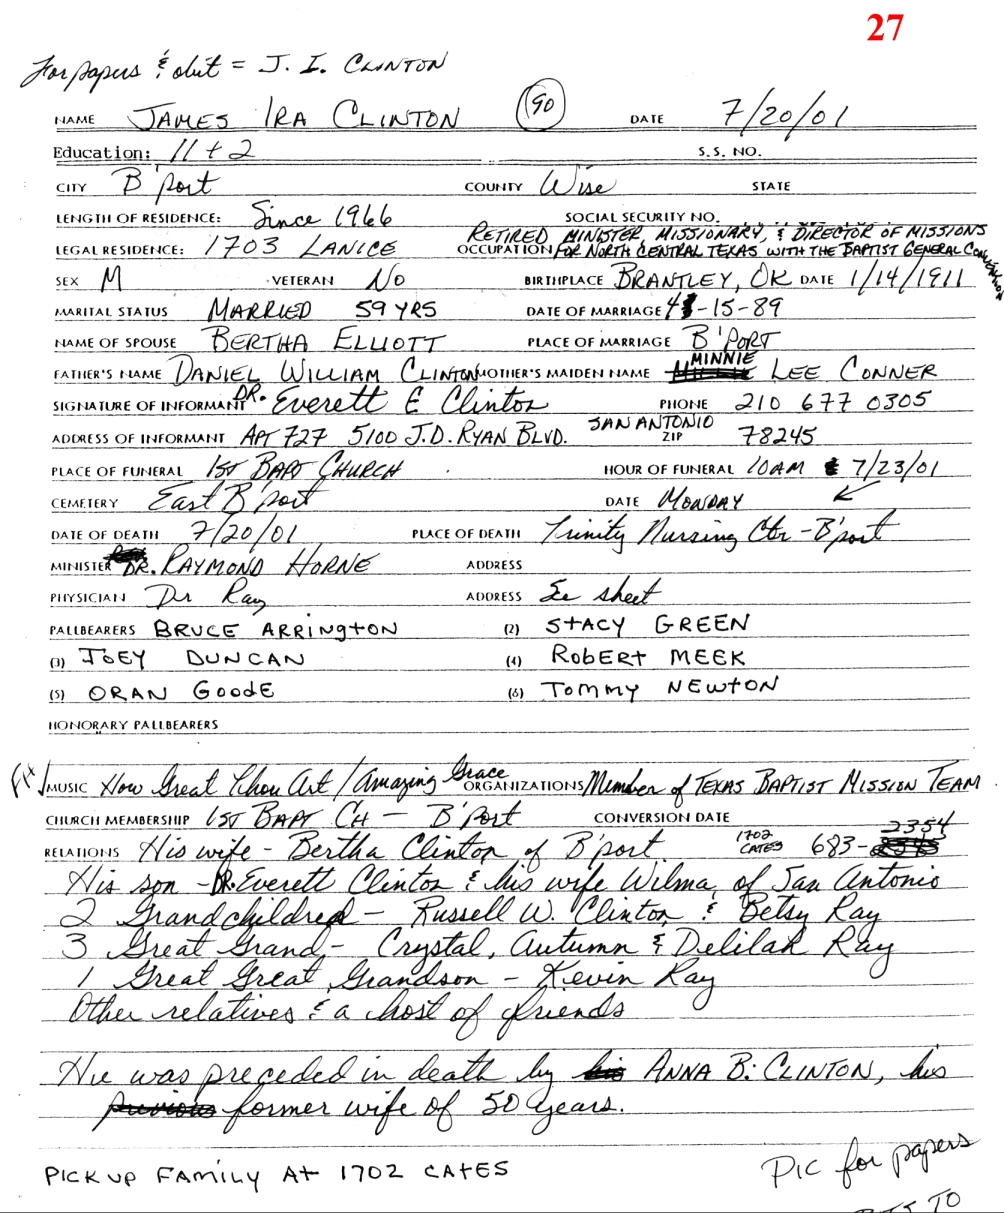 27
For papers & obit = J. I. CLINTON
NAME JAMES IRA CLINTON 90 DATE 7/20/01
Education: 11 + 2 S.S. NO.
CITY B'port COUNTY Wise STATE
LENGTH OF RESIDENCE: Since 1966 SOCIAL SECURITY NO.
RETIRED MINISTER MISSIONARY, & DIRECTOR OF MISSIONS
LEGAL RESIDENCE: 1703 LANICE OCCUPATION FOR NORTH CENTRAL TEXAS WITH THE BAPTIST GENERAL CONVENTION
SEX M VETERAN No BIRTHPLACE BRANTLEY, OK DATE 1/14/1911
MARITAL STATUS MARRIED 59 YRS DATE OF MARRIAGE 4-15-89
NAME OF SPOUSE BERTHA ELLIOTT PLACE OF MARRIAGE B'PORT
FATHER'S NAME DANIEL WILLIAM CLINTON MOTHER'S MAIDEN NAME MINNIE LEE CONNER
SIGNATURE OF INFORMANT DR. Everett E Clinton PHONE 210 677 0305
ADDRESS OF INFORMANT APT 727 5100 J.D. RYAN BLVD. SAN ANTONIO ZIP 78245
PLACE OF FUNERAL 1ST BAPT CHURCH HOUR OF FUNERAL 10AM 7/23/01
CEMETERY East B'port DATE MONDAY
DATE OF DEATH 7/20/01 PLACE OF DEATH Trinity Nursing Ctr - B'port
MINISTER DR. RAYMOND HORNE ADDRESS
PHYSICIAN Dr Ray ADDRESS See sheet
PALLBEARERS BRUCE ARRINGTON (2) STACY GREEN
(3) JOEY DUNCAN (4) ROBERT MEEK
(5) ORAN GOODE (6) TOMMY NEWTON
HONORARY PALLBEARERS
MUSIC How Great Thou Art / Amazing Grace ORGANIZATIONS Member of TEXAS BAPTIST MISSION TEAM
CHURCH MEMBERSHIP 1ST BAPT CH - B'Port CONVERSION DATE
RELATIONS His wife - Bertha Clinton of B'port 1702 CATES 683-2354
His son - Dr. Everett Clinton & his wife Wilma, of San Antonio
2 Grandchildred - Russell W. Clinton & Betsy Ray
3 Great Grand - Crystal, Autumn & Delilah Ray
1 Great Great Grandson - Kevin Ray
Other relatives & a host of friends
He was preceded in death by ANNA B. CLINTON, his
former wife of 50 years.
PICK UP FAMILY At 1702 CATES
PIC for papers